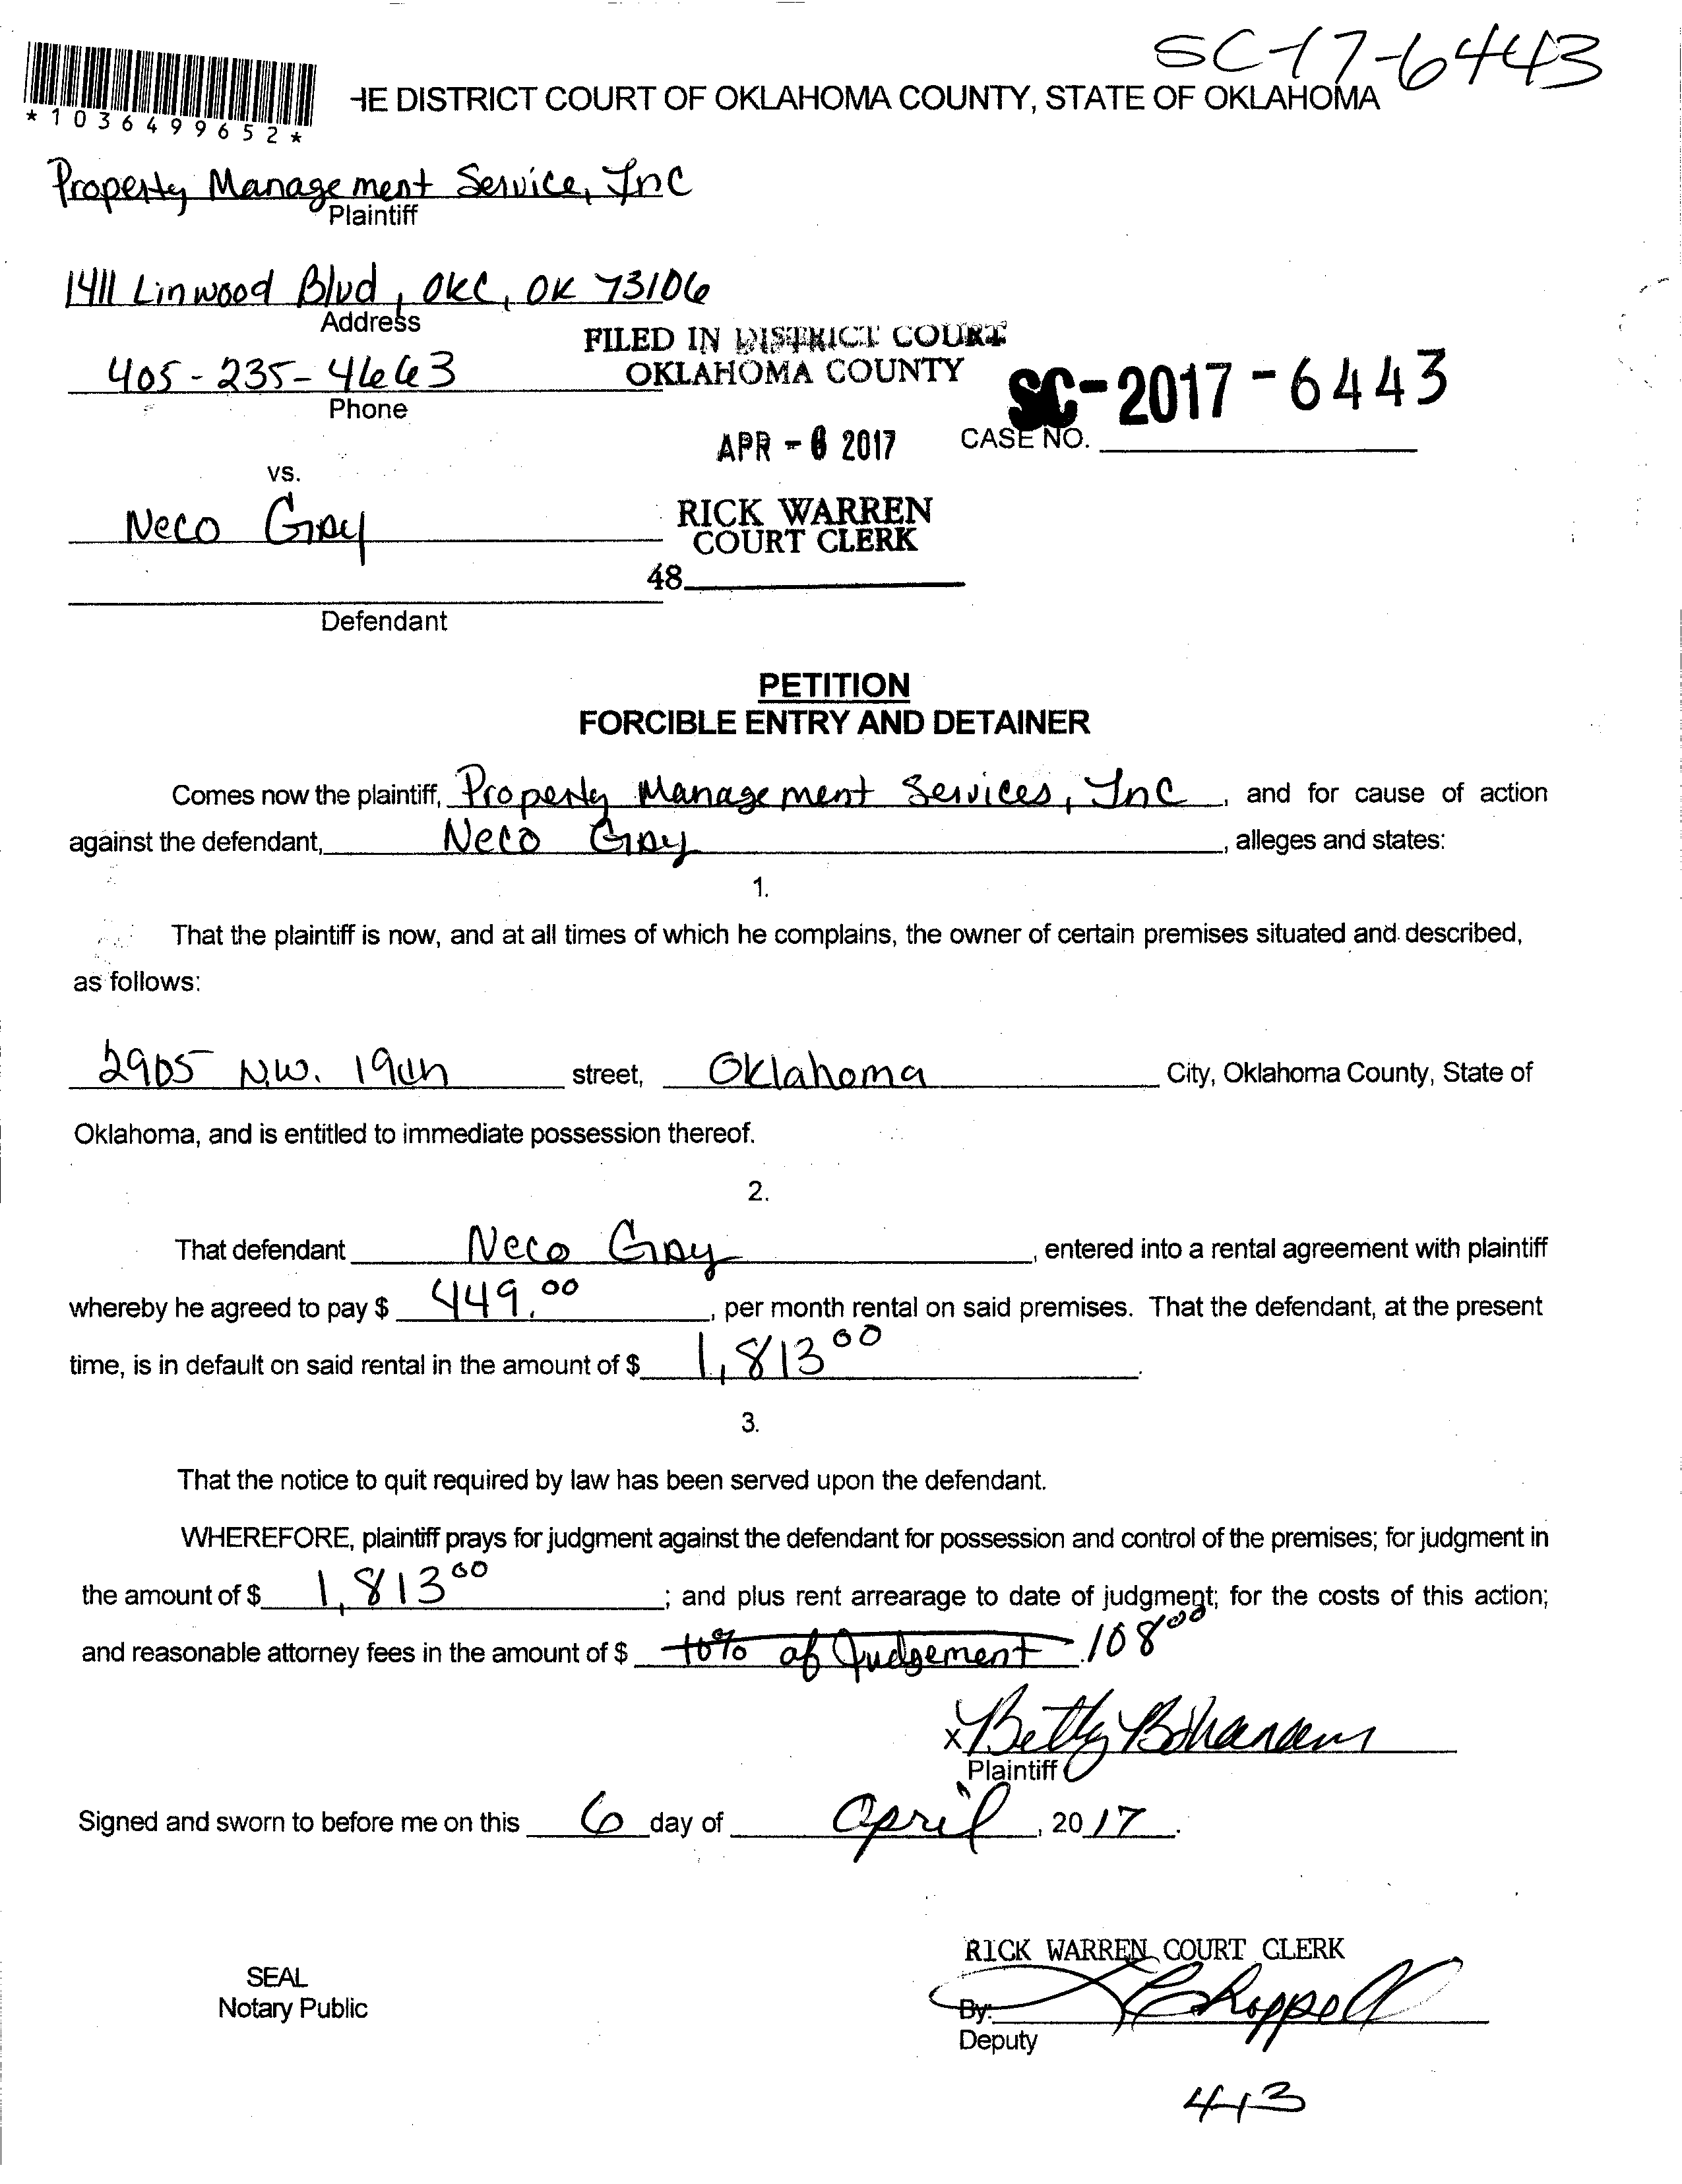 SC-17-6443
*1036499652*
HE DISTRICT COURT OF OKLAHOMA COUNTY, STATE OF OKLAHOMA
Property Management Service, Inc
Plaintiff
1411 Linwood Blvd, OKC, OK 73106
Address
FILED IN DISTRICT COURT
OKLAHOMA COUNTY
405-235-4663
Phone
SC-2017-6443
CASE NO.
APR - 6 2017
vs.
Neco Gray
RICK WARREN
COURT CLERK
48
Defendant
PETITION
FORCIBLE ENTRY AND DETAINER
Comes now the plaintiff, Property Management Services, Inc, and for cause of action
against the defendant, Neco Gray, alleges and states:
1.
That the plaintiff is now, and at all times of which he complains, the owner of certain premises situated and described,
as follows:
2905 N.W. 19th street, Oklahoma City, Oklahoma County, State of
Oklahoma, and is entitled to immediate possession thereof.
2.
That defendant Neco Gray, entered into a rental agreement with plaintiff
whereby he agreed to pay $ 449.00, per month rental on said premises. That the defendant, at the present
time, is in default on said rental in the amount of $ 1,813 00.
3.
That the notice to quit required by law has been served upon the defendant.
WHEREFORE, plaintiff prays for judgment against the defendant for possession and control of the premises; for judgment in
the amount of $ 1,813 00; and plus rent arrearage to date of judgment; for the costs of this action;
and reasonable attorney fees in the amount of $ 10% of Judgement 108 00
x Betty
Plaintiff
Signed and sworn to before me on this 6 day of April, 2017.
RICK WARREN COURT CLERK
SEAL
Notary Public
By: Chappell
Deputy
413